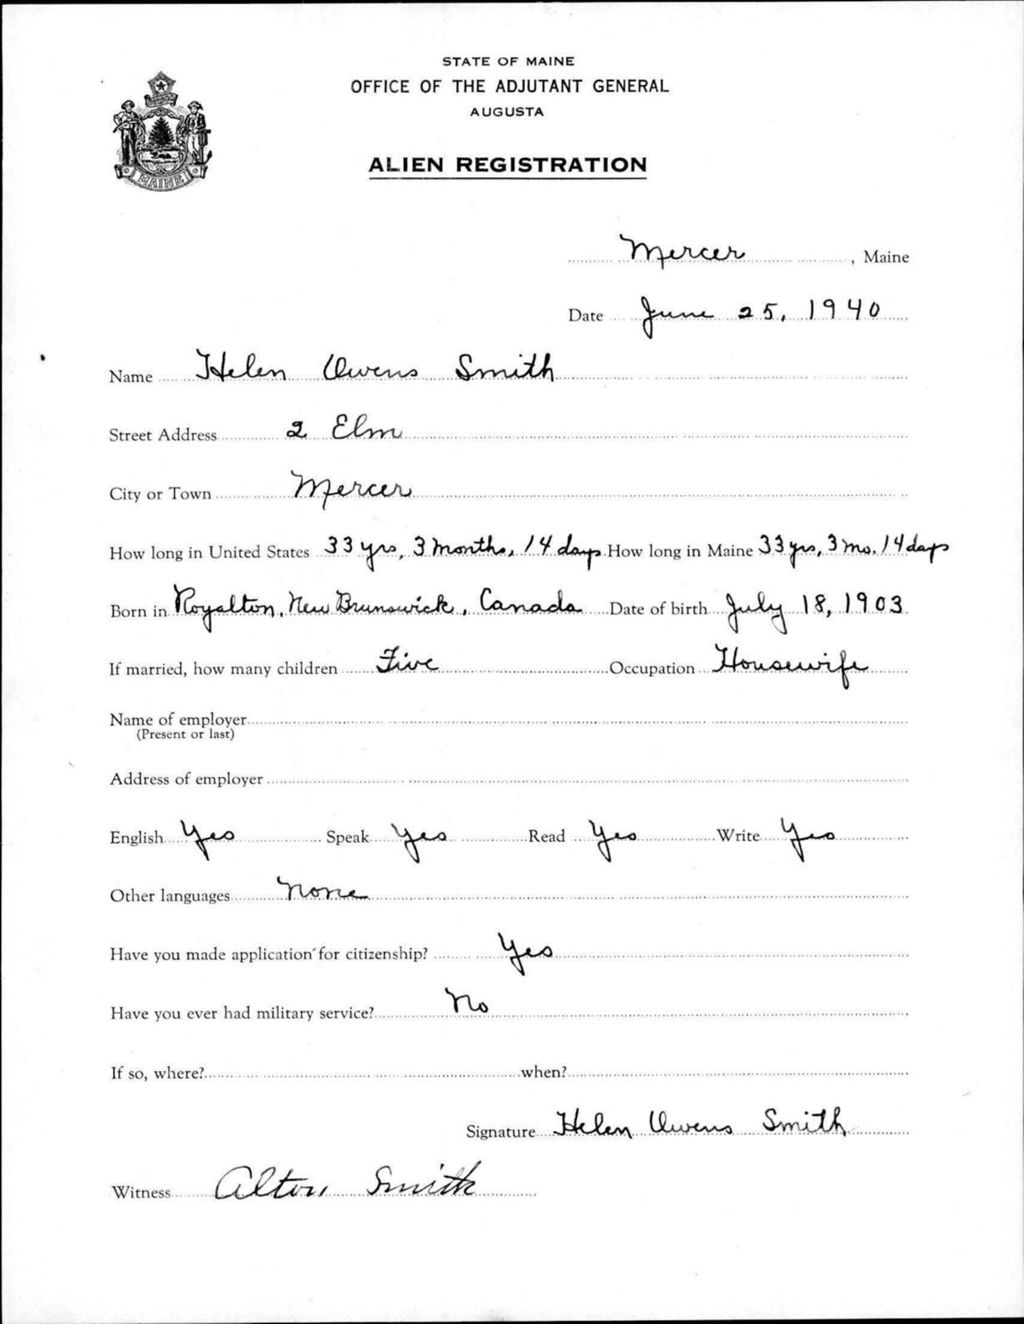 STATE OF MAINE
OFFICE OF THE ADJUTANT GENERAL
AUGUSTA
ALIEN REGISTRATION
MAINE
Mercer, Maine
Date June 25, 1940
Name Helen Owens Smith
Street Address 2 Elm
City or Town Mercer
How long in United States 33 yrs, 3 months, 14 days How long in Maine 33 yrs, 3 mo. 14 days
Born in Royalton, New Brunswick, Canada Date of birth July 18, 1903
If married, how many children Five Occupation Housewife
Name of employer
(Present or last)
Address of employer
English Yes Speak Yes Read Yes Write Yes
Other languages None
Have you made application for citizenship? Yes
Have you ever had military service? No
If so, where? when?
Signature Helen Owens Smith
Witness Alton Smith